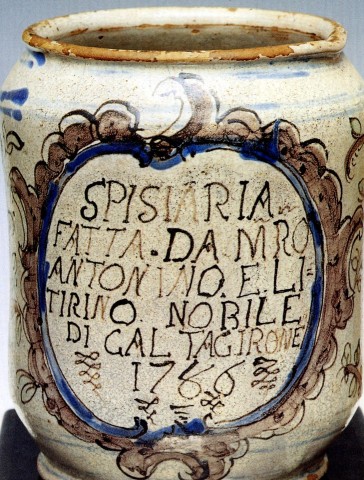 SPISIARIA.
FATTA. DA MRO
ANTONINO. E. LI-
TIRINO NOBILE
DI CALTAGIRONE
1766